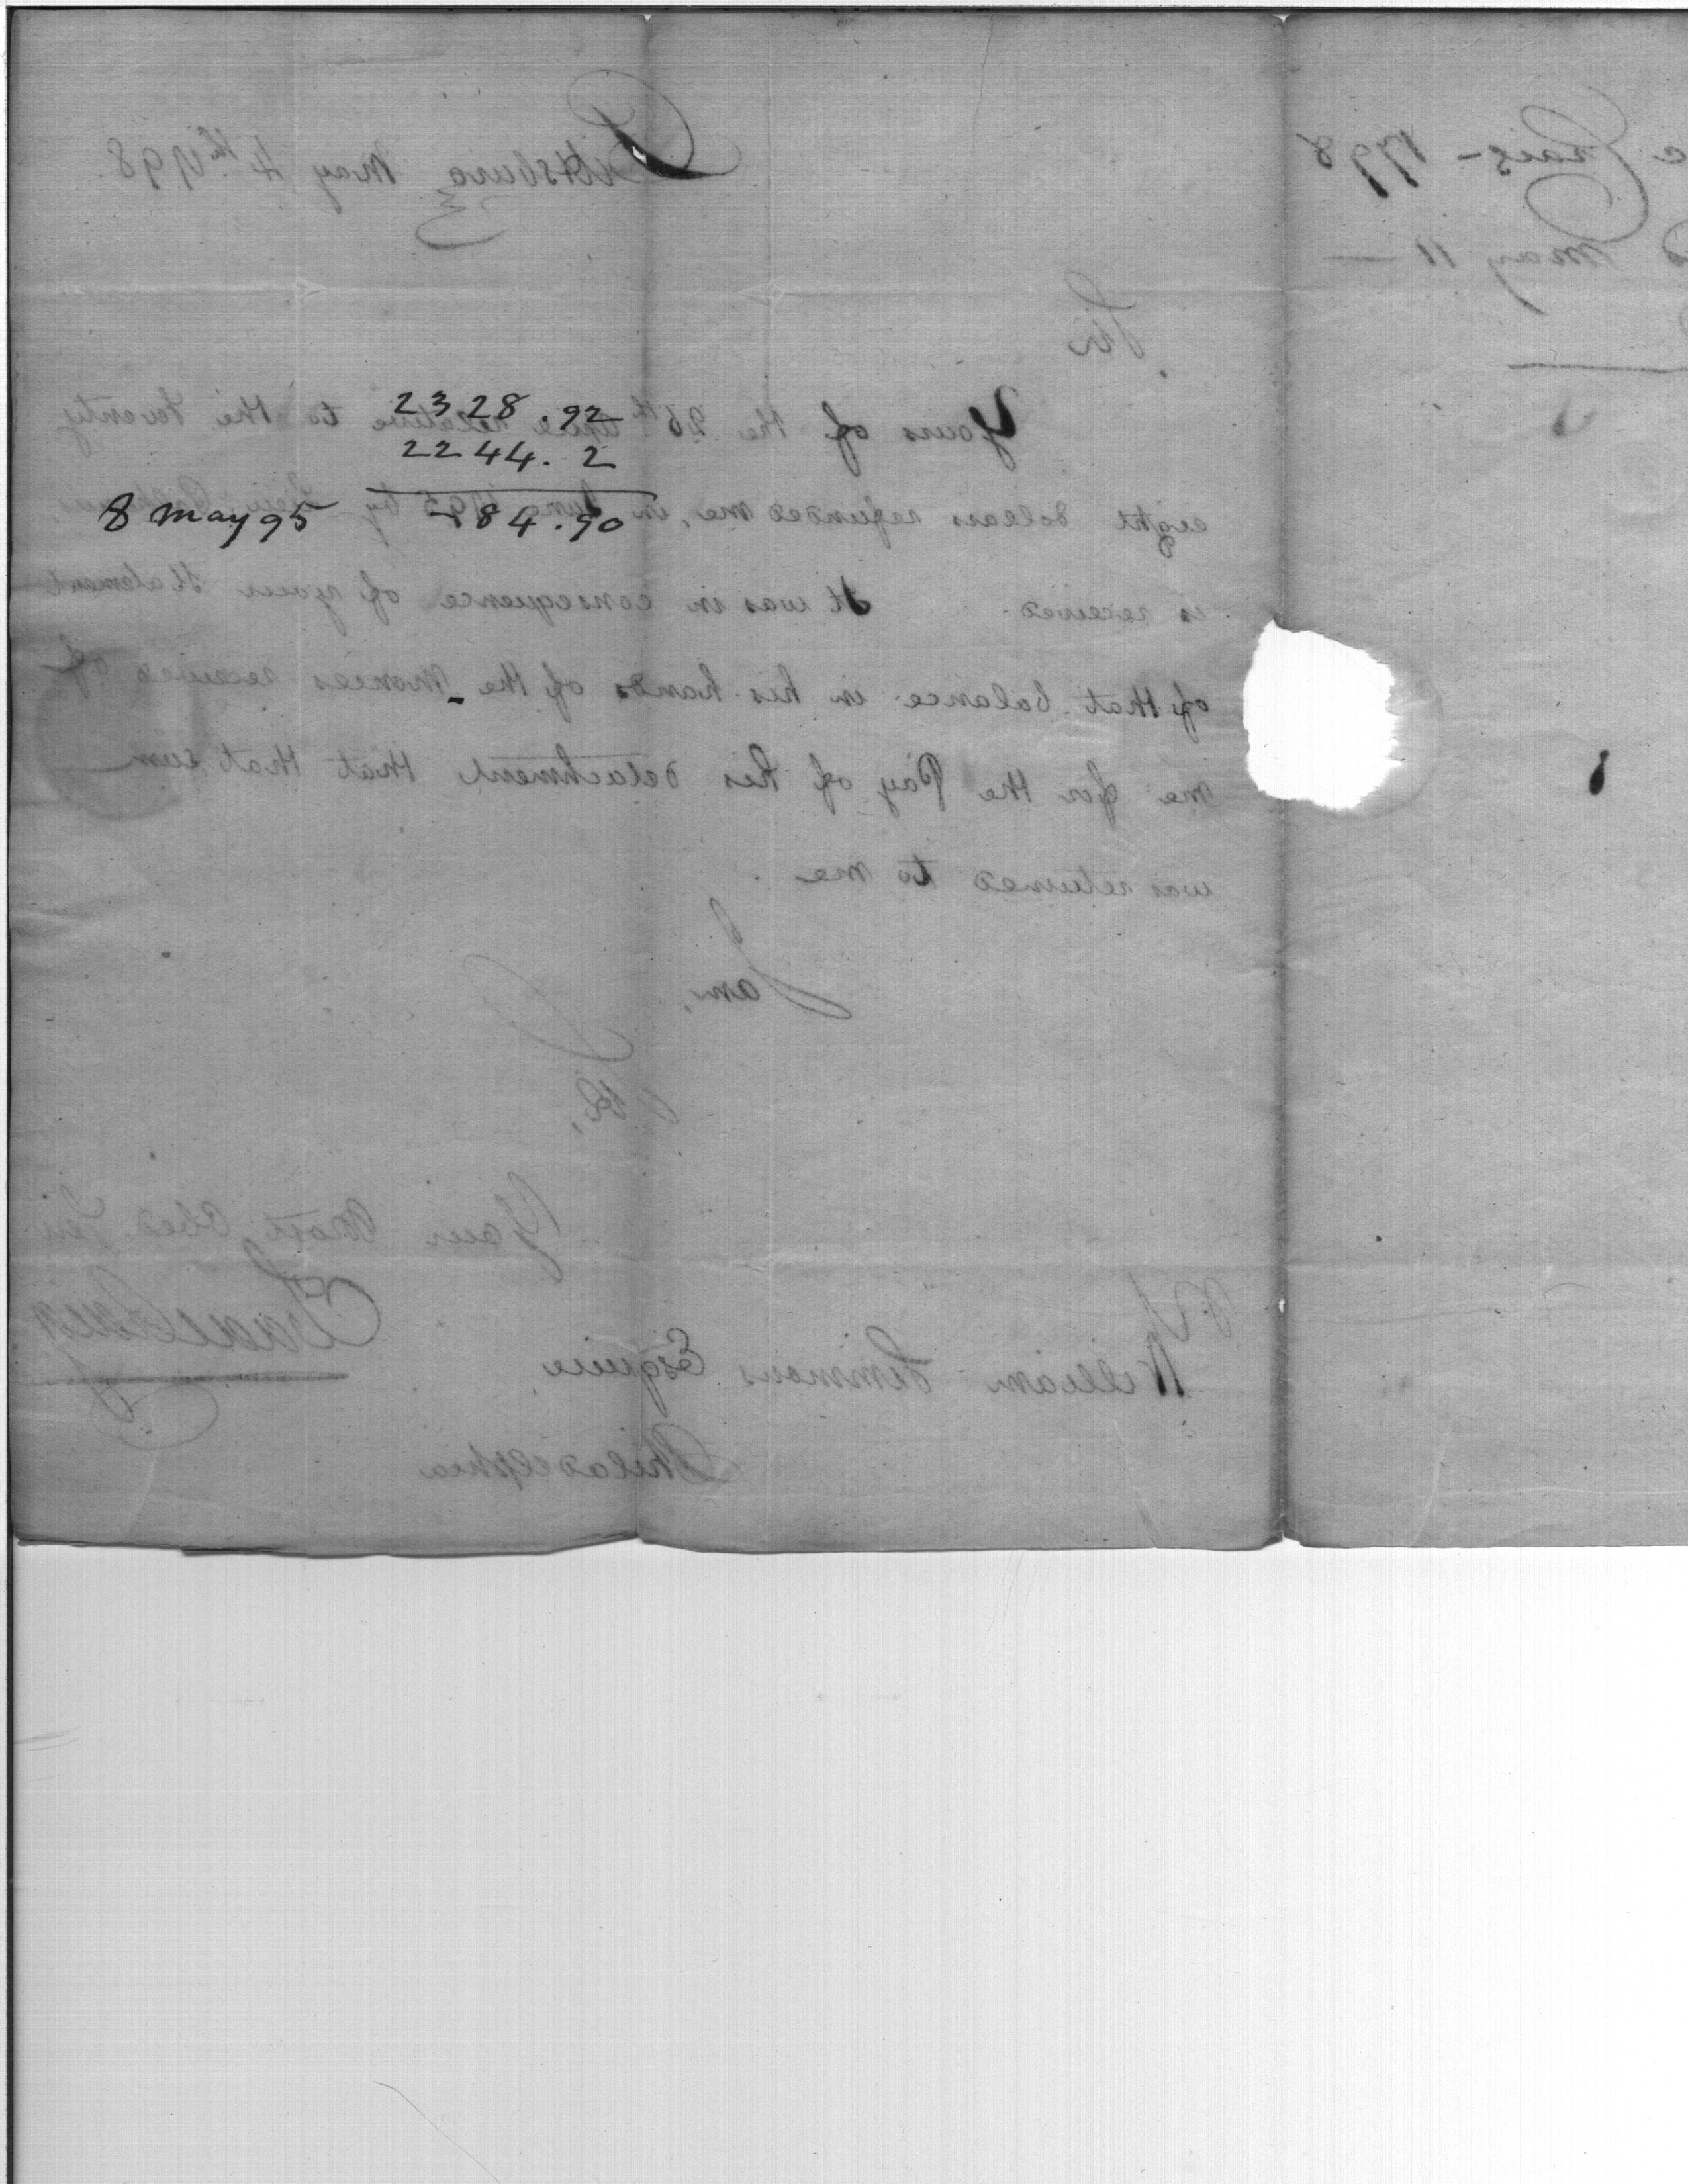 Pittsburg May 4th 1798
Sir
Yours of the 26th April relative to the Seventy
eight dollars refunded me, in June 1795 by
is received It was in consequence of your Statement
of that balance in his hands of the Monies received of
me for the Pay of his detachment that that sum
was returned to me
I am,
Sir,
Your Most Obed Ser
Isaac Craig
William Simmons Esquire
Philadelphia
2328.92
2244. 2
8 May 95 84.90
Craig - 1798
May 11